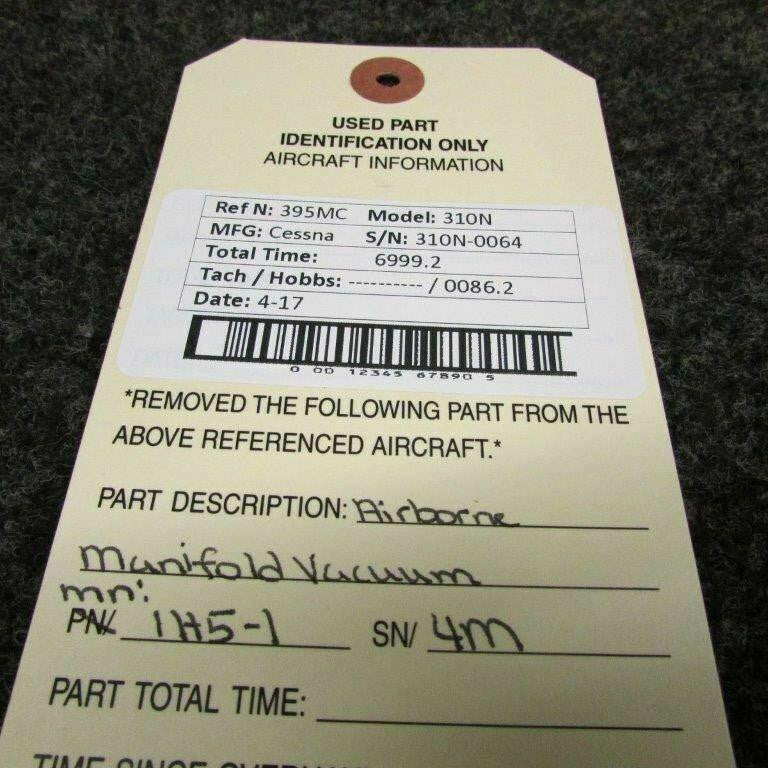 USED PART
IDENTIFICATION ONLY
AIRCRAFT INFORMATION
Ref N: 395MC Model: 310N
MFG: Cessna S/N: 310N-0064
Total Time: 6999.2
Tach / Hobbs: ---------- / 0086.2
Date: 4-17
0 00 12345 67890 5
*REMOVED THE FOLLOWING PART FROM THE
ABOVE REFERENCED AIRCRAFT.*
PART DESCRIPTION: Airborne
Manifold Vacuum
mn:
PN/ 1H5-1 SN/ 4M
PART TOTAL TIME:
TIME SINCE